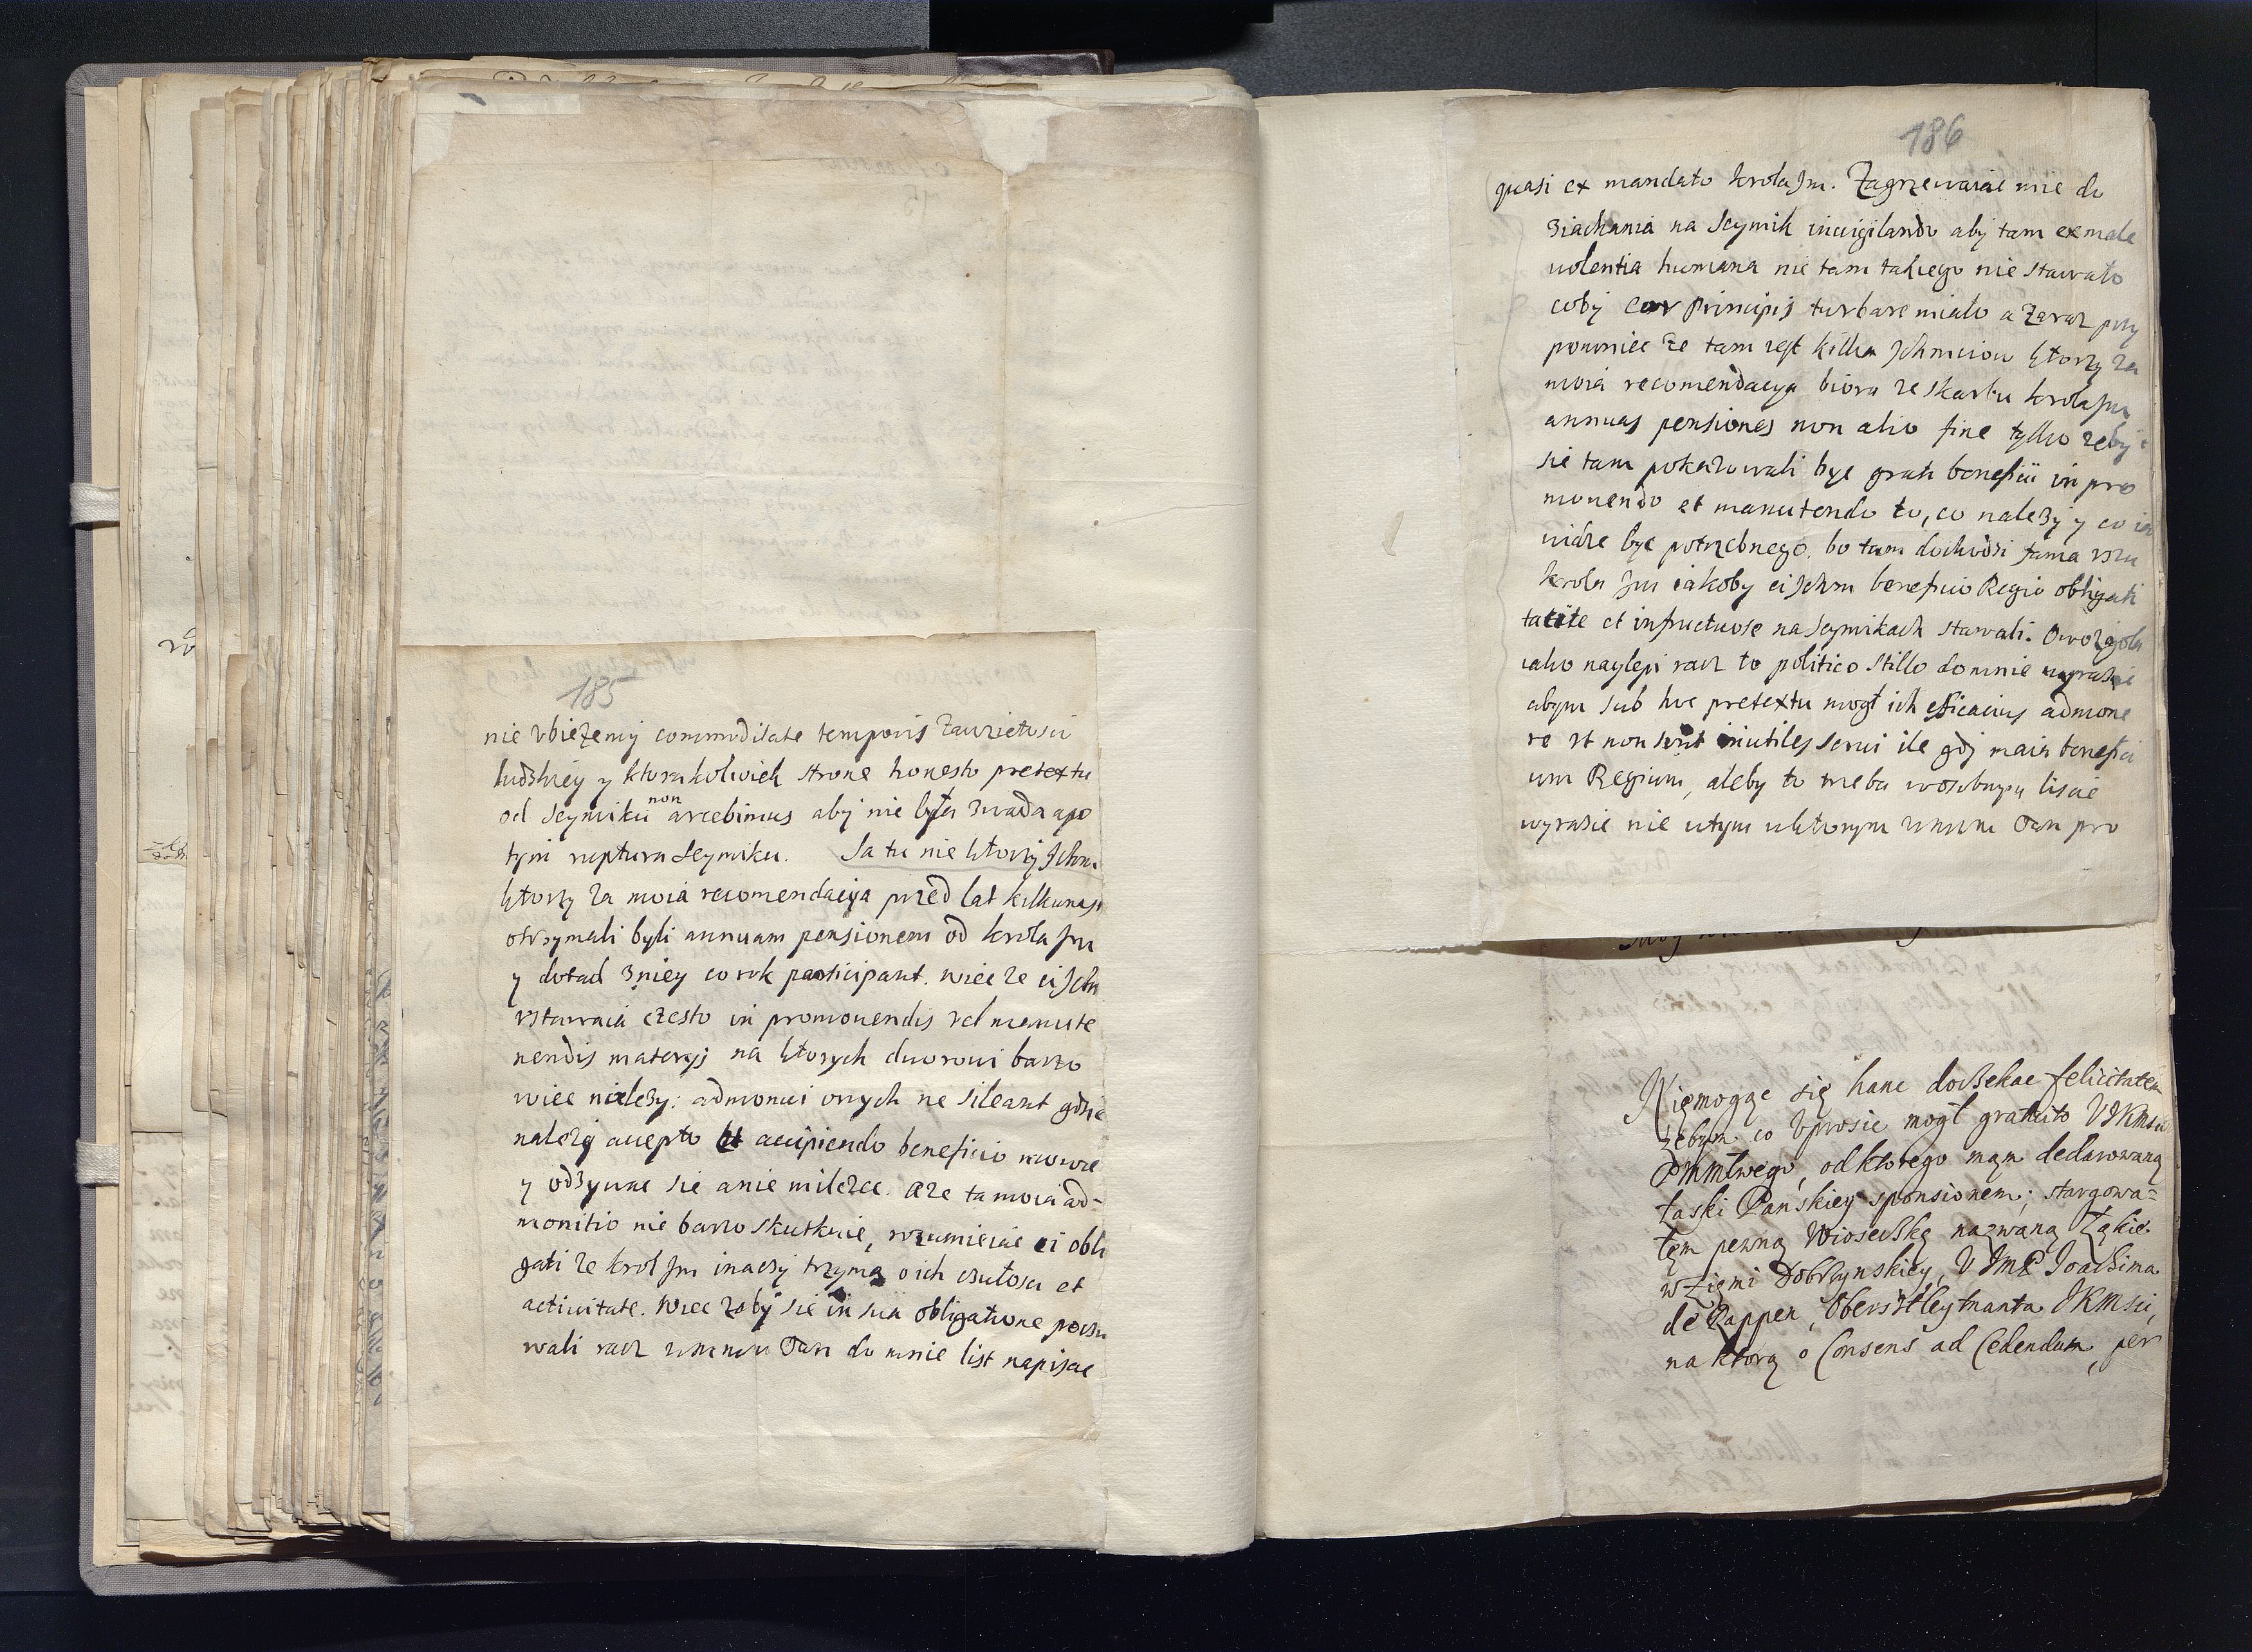 185
nie vbieżemy commoditate temporis zawzietosci
ludzkiey y ktorakolwiek strone honesto pretextu
od Seymiku non arcebimus aby nie była zwada a po
tym ruptura Seymiku. Sa tu nie ktorzy Ichm.
ktorzy za moia recomendacyia przed lat kilkunast
otrzymali byli annuam pensionem od krola Jm
y dotad z niey co rok participant. wiec ze ci Ichm
vstawaia czesto in promouendis vel manute
nendis materyis na ktorych dworowi barzo
wiec nalezy: admonui onych ne sileant gdzie
należy accepto et accipiendo beneficio mowic
y odzywac sie a nie milczec. Aze ta moia ad-
monitio nie barzo skutkuie, rozumieiac ci obli
gati ze krol Jm inaczy trzyma o ich czułosci et
actiuitate. wiec zeby sie in sua obligatione poczu
wali racz wmm Pan do mnie list napisac
186
quasi ex mandato krola Jm. Zagrzewaiac mie do
ziachania na Seymik inuigilando aby tam ex male
uolentia humana nic tam takiego nie stawało
coby cor Principis turbare miało a zaraz przy
pomniec ze tam iest kilka Ichmciow ktorzy za
moia recomendacya biora ze skarbu krola Jm
annuas pensiones non alio fine tylko zeby
sie tam pokazowali byc grati beneficii in pro
mouendo et manutendo to, co należy y co ia
widze byc potrzebnego. bo tam dochodzi fama vszu
krola Jm iakoby ci Ichm beneficio Regio obligati
tacite et infructuose na Seymikach stawali. Owo zgoła
iako naylepi racz to politico stillo do mnie wyrazic
abym sub hoc pretextu mogł ich eficacius admone
re vt non sint inutiles serui ile gdy maia benefici
um Regium, aleby to trzeba w osobnym liscie
wyrazic nie w tym w ktorym wmm Pan pro
Niemogę się hanc doczekac felicitatem
żebym co vprosic mogł gratuito V JKMsci
PMMłwego, od ktorego mąm declarowaną
Łaski Panskiey sponsionem; stargowa=
łem pewną Wioseczkę nazwaną Łąkie
w Ziemi Dobrzynskiey, V JmP Joachima
de Pappen, Oberszteleytnanta JKMsci,
na ktorą o Consens ad Cedendum, per